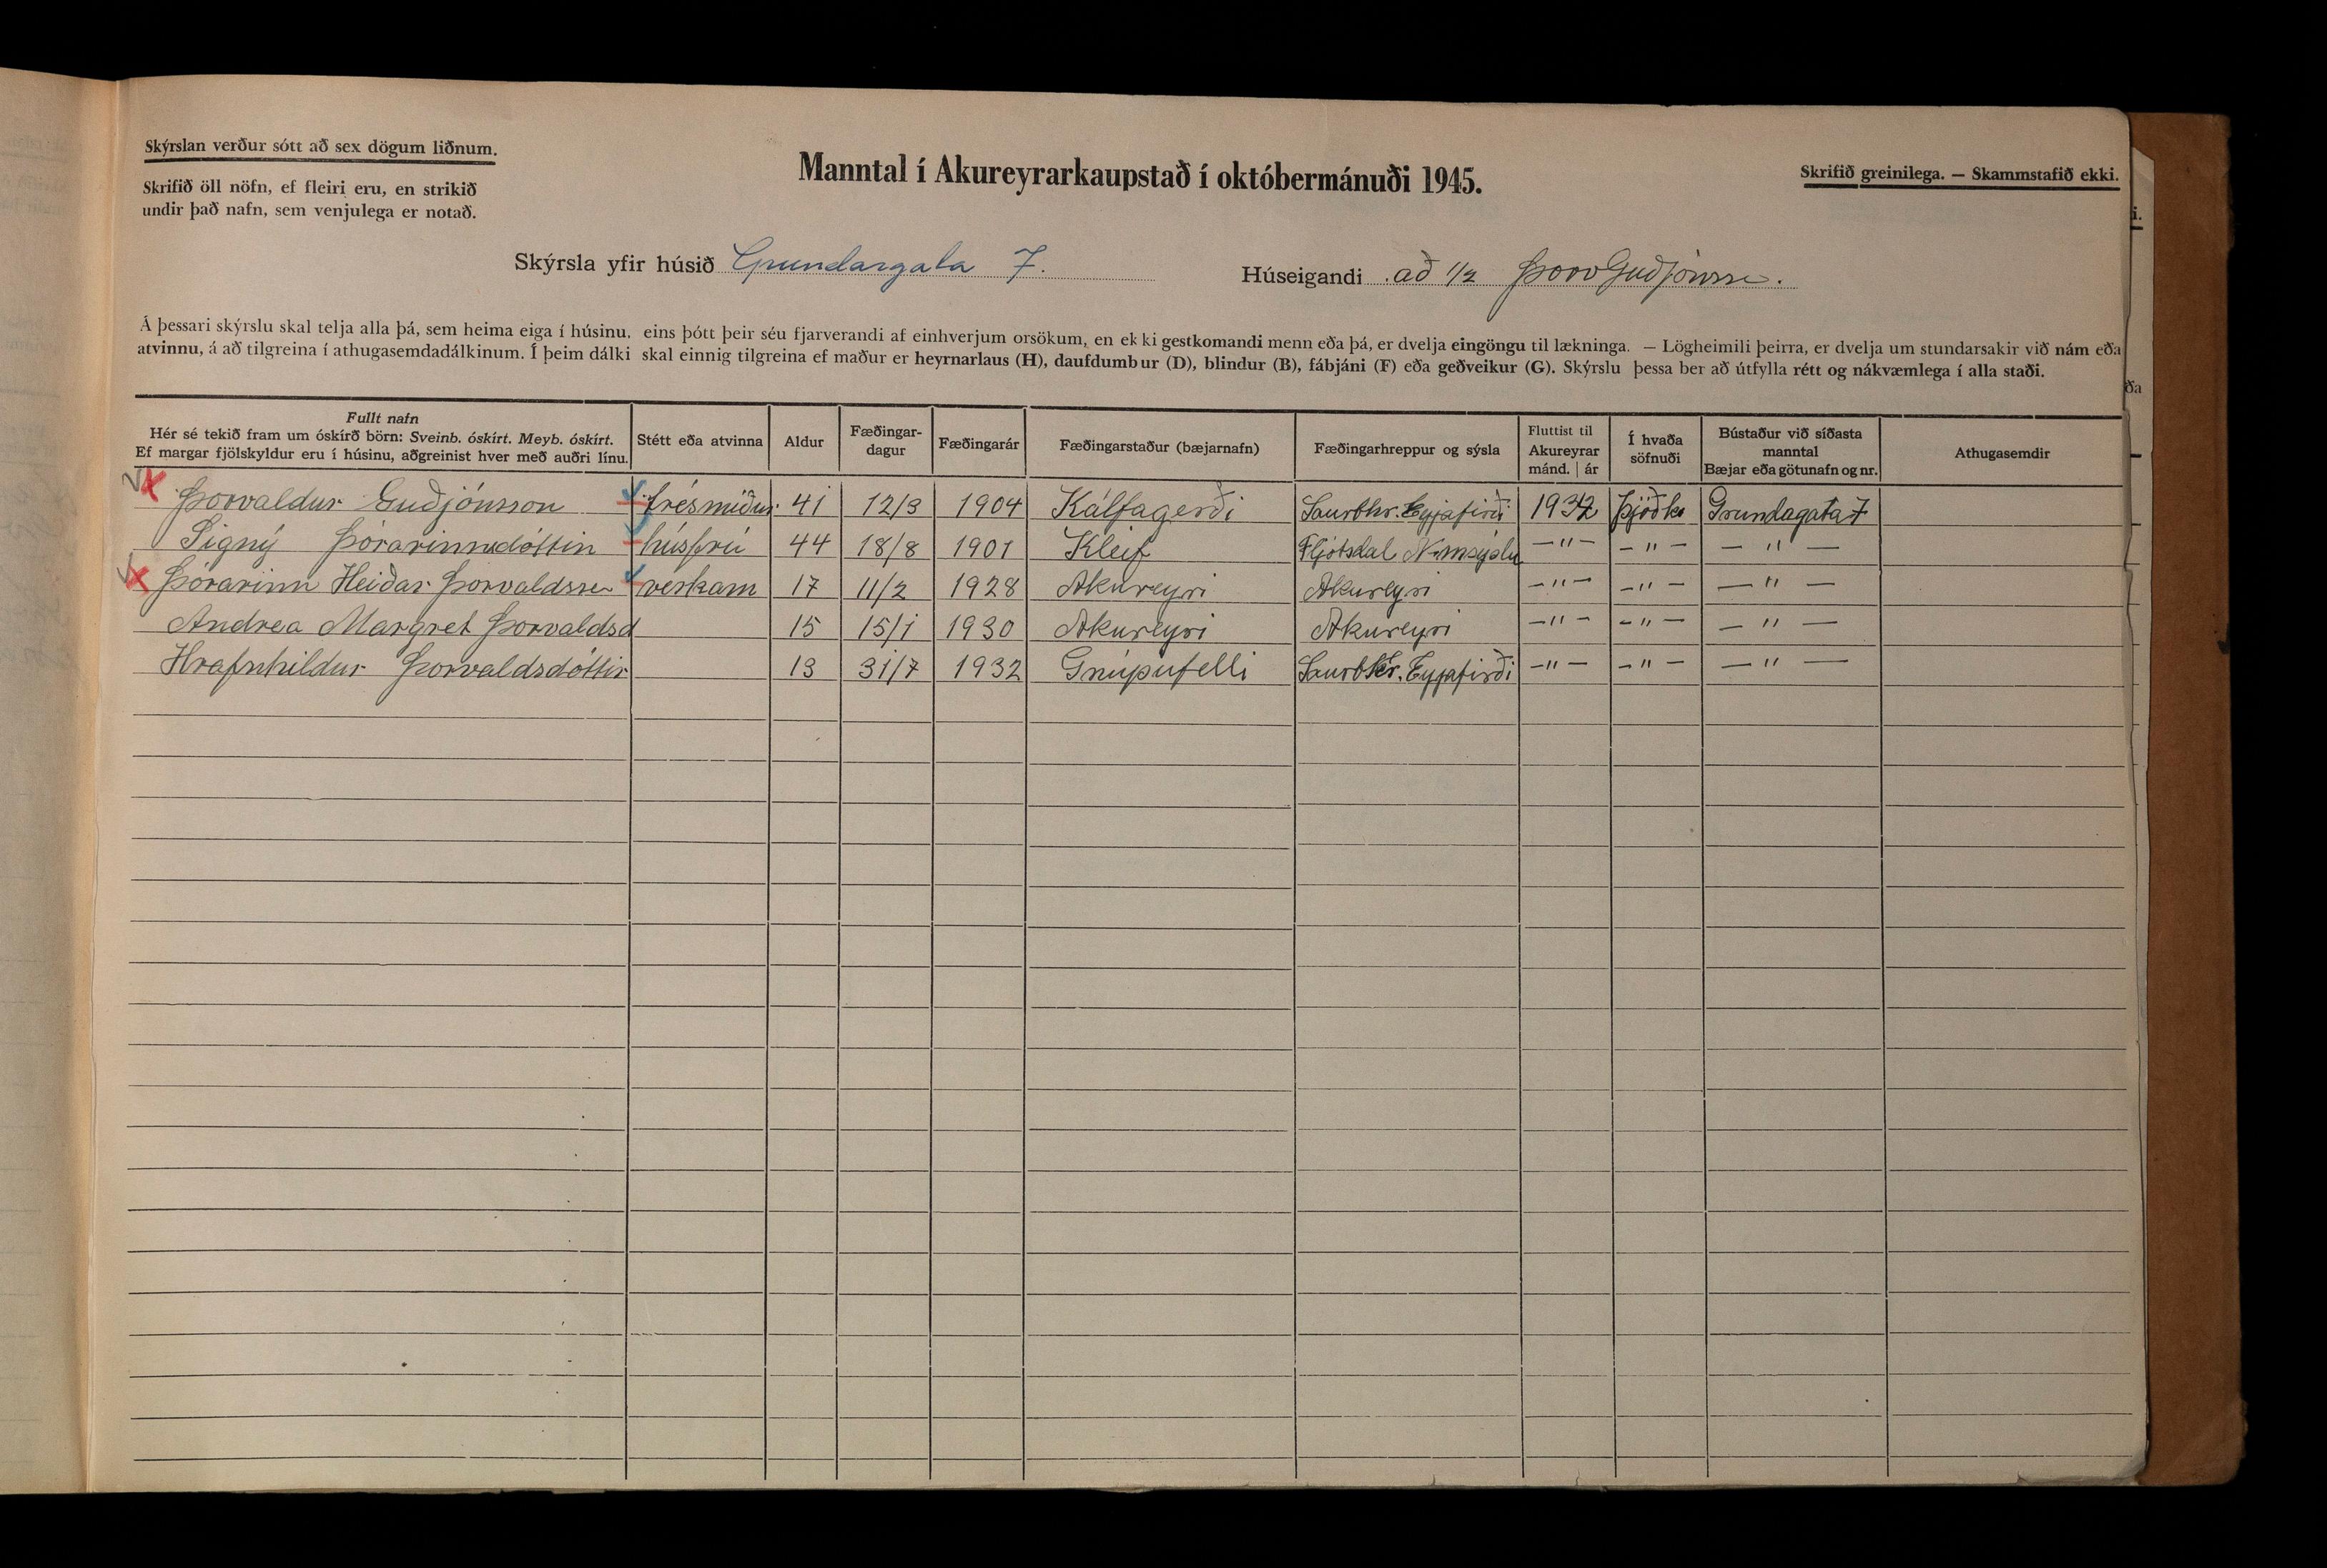 Skýrslan verður sótt að sex dögum liðnum.
Skrifið öll nöfn, ef fleiri eru, en strikið
undir það nafn, sem venjulega er notað.
Manntal í Akureyrarkaupstað í októbermánuði 1945.
Skrifið greinilega. — Skammstafið ekki.
Skýrsla yfir húsið Grundargata 7. Húseigandi að 1/2 Þorv Guðjónsson.
Á þessari skýrslu skal telja alla þá, sem heima eiga í húsinu, eins þótt þeir séu fjarverandi af einhverjum orsökum, en ekki gestkomandi menn eða þá, er dvelja eingöngu til lækninga. — Lögheimili þeirra, er dvelja um stundarsakir við nám eða
atvinnu, á að tilgreina í athugasemdadálkinum. Í þeim dálki skal einnig tilgreina ef maður er heyrnarlaus (H), daufdumbur (D), blindur (B), fábjáni (F) eða geðveikur (G). Skýrslu þessa ber að útfylla rétt og nákvæmlega í alla staði.
Fullt nafn
Hér sé tekið fram um óskírð börn: Sveinb. óskírt. Meyb. óskírt.
Ef margar fjölskyldur eru í húsinu, aðgreinist hver með auðri línu.
Stétt eða atvinna
Aldur
Fæðingar-
dagur
Fæðingarár
Fæðingarstaður (bæjarnafn)
Fæðingarhreppur og sýsla
Fluttist til
Akureyrar
mánd. | ár
Í hvaða
söfnuði
Bústaður við síðasta
manntal
Bæjar eða götunafn og nr.
Athugasemdir
Þorvaldur Guðjónsson trésmiður 41 12/3 1904 Kálfagerði Saurbhr. Eyjafirði 1932 Þjóðk Grundagata 7
Signý Þórarinnsdóttir húsfrú 44 18/8 1901 Kleif Fljótsdal N-músýslu —"— —"— —"—
Þórarinn Heiðar Þorvaldsson verkam 17 11/2 1928 Akureyri Akureyri —"— —"— —"—
Andrea Margret Þorvaldsd 15 15/1 1930 Akureyri Akureyri —"— —"— —"—
Hrafnhildur Þorvaldsdóttir 13 31/7 1932 Gnúpufelli Saurbhr. Eyjafirði —"— —"— —"—